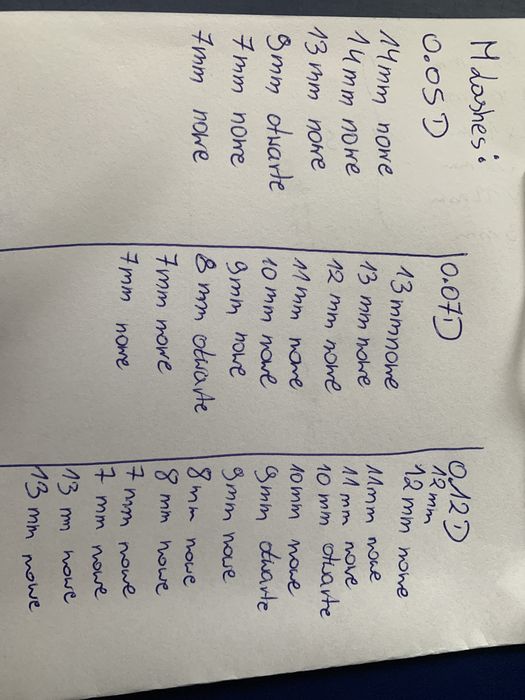 M dashes:
0.05D
14mm nowe
14mm nowe
13mm nowe
9mm otwarte
7mm nowe
7mm nowe
0.07D
13mm nowe
13mm nowe
12mm nowe
11mm nowe
10mm nowe
9mm nowe
8mm otwarte
7mm nowe
7mm nowe
0.12D
12mm
12mm nowe
11mm nowe
11mm nowe
10mm otwarte
10mm nowe
9mm otwarte
9mm nowe
8mm nowe
8mm nowe
7mm nowe
7mm nowe
13mm nowe
13mm nowe